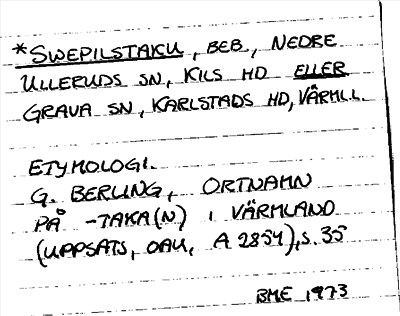 *SWEPILSTAKU, BEB., NEDRE
ULLERUDS SN, KILS HD ELLER
GRAVA SN, KARLSTADS HD, VÄRML.
ETYMOLOGI.
G. BERLING, ORTNAMN
PÅ -TAKA(N) I VÄRMLAND
(UPPSATS, OAU, A 2854), S. 35
BME 1973